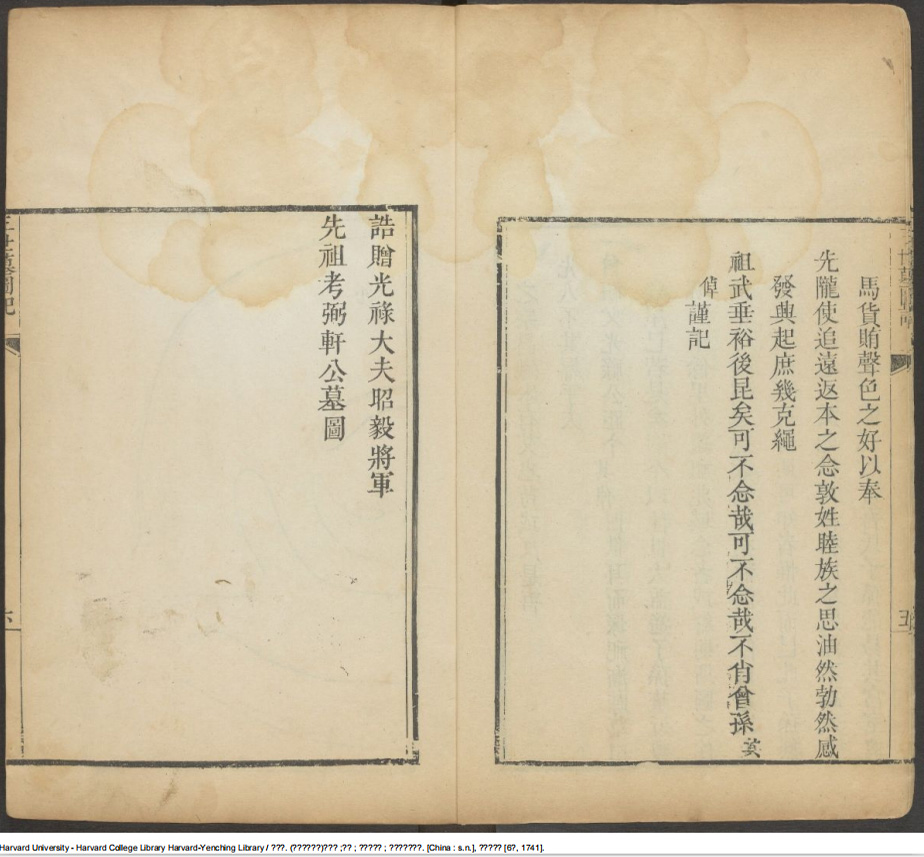 馬貨賄聲色之好以奉
先隴使追遠返本之念敦姓睦族之思油然勃然感
發興起庶幾克繩
祖武垂裕後昆矣可不念哉可不念哉不肖曾孫
倬謹記
五
誥贈光祿大夫昭毅將軍
先祖考弼軒公墓圖
六
Harvard University - Harvard College Library Harvard-Yenching Library / ???. (??????)??? ;?? ; ????? ; ???????. [China : s.n.], ????? [6?, 1741].